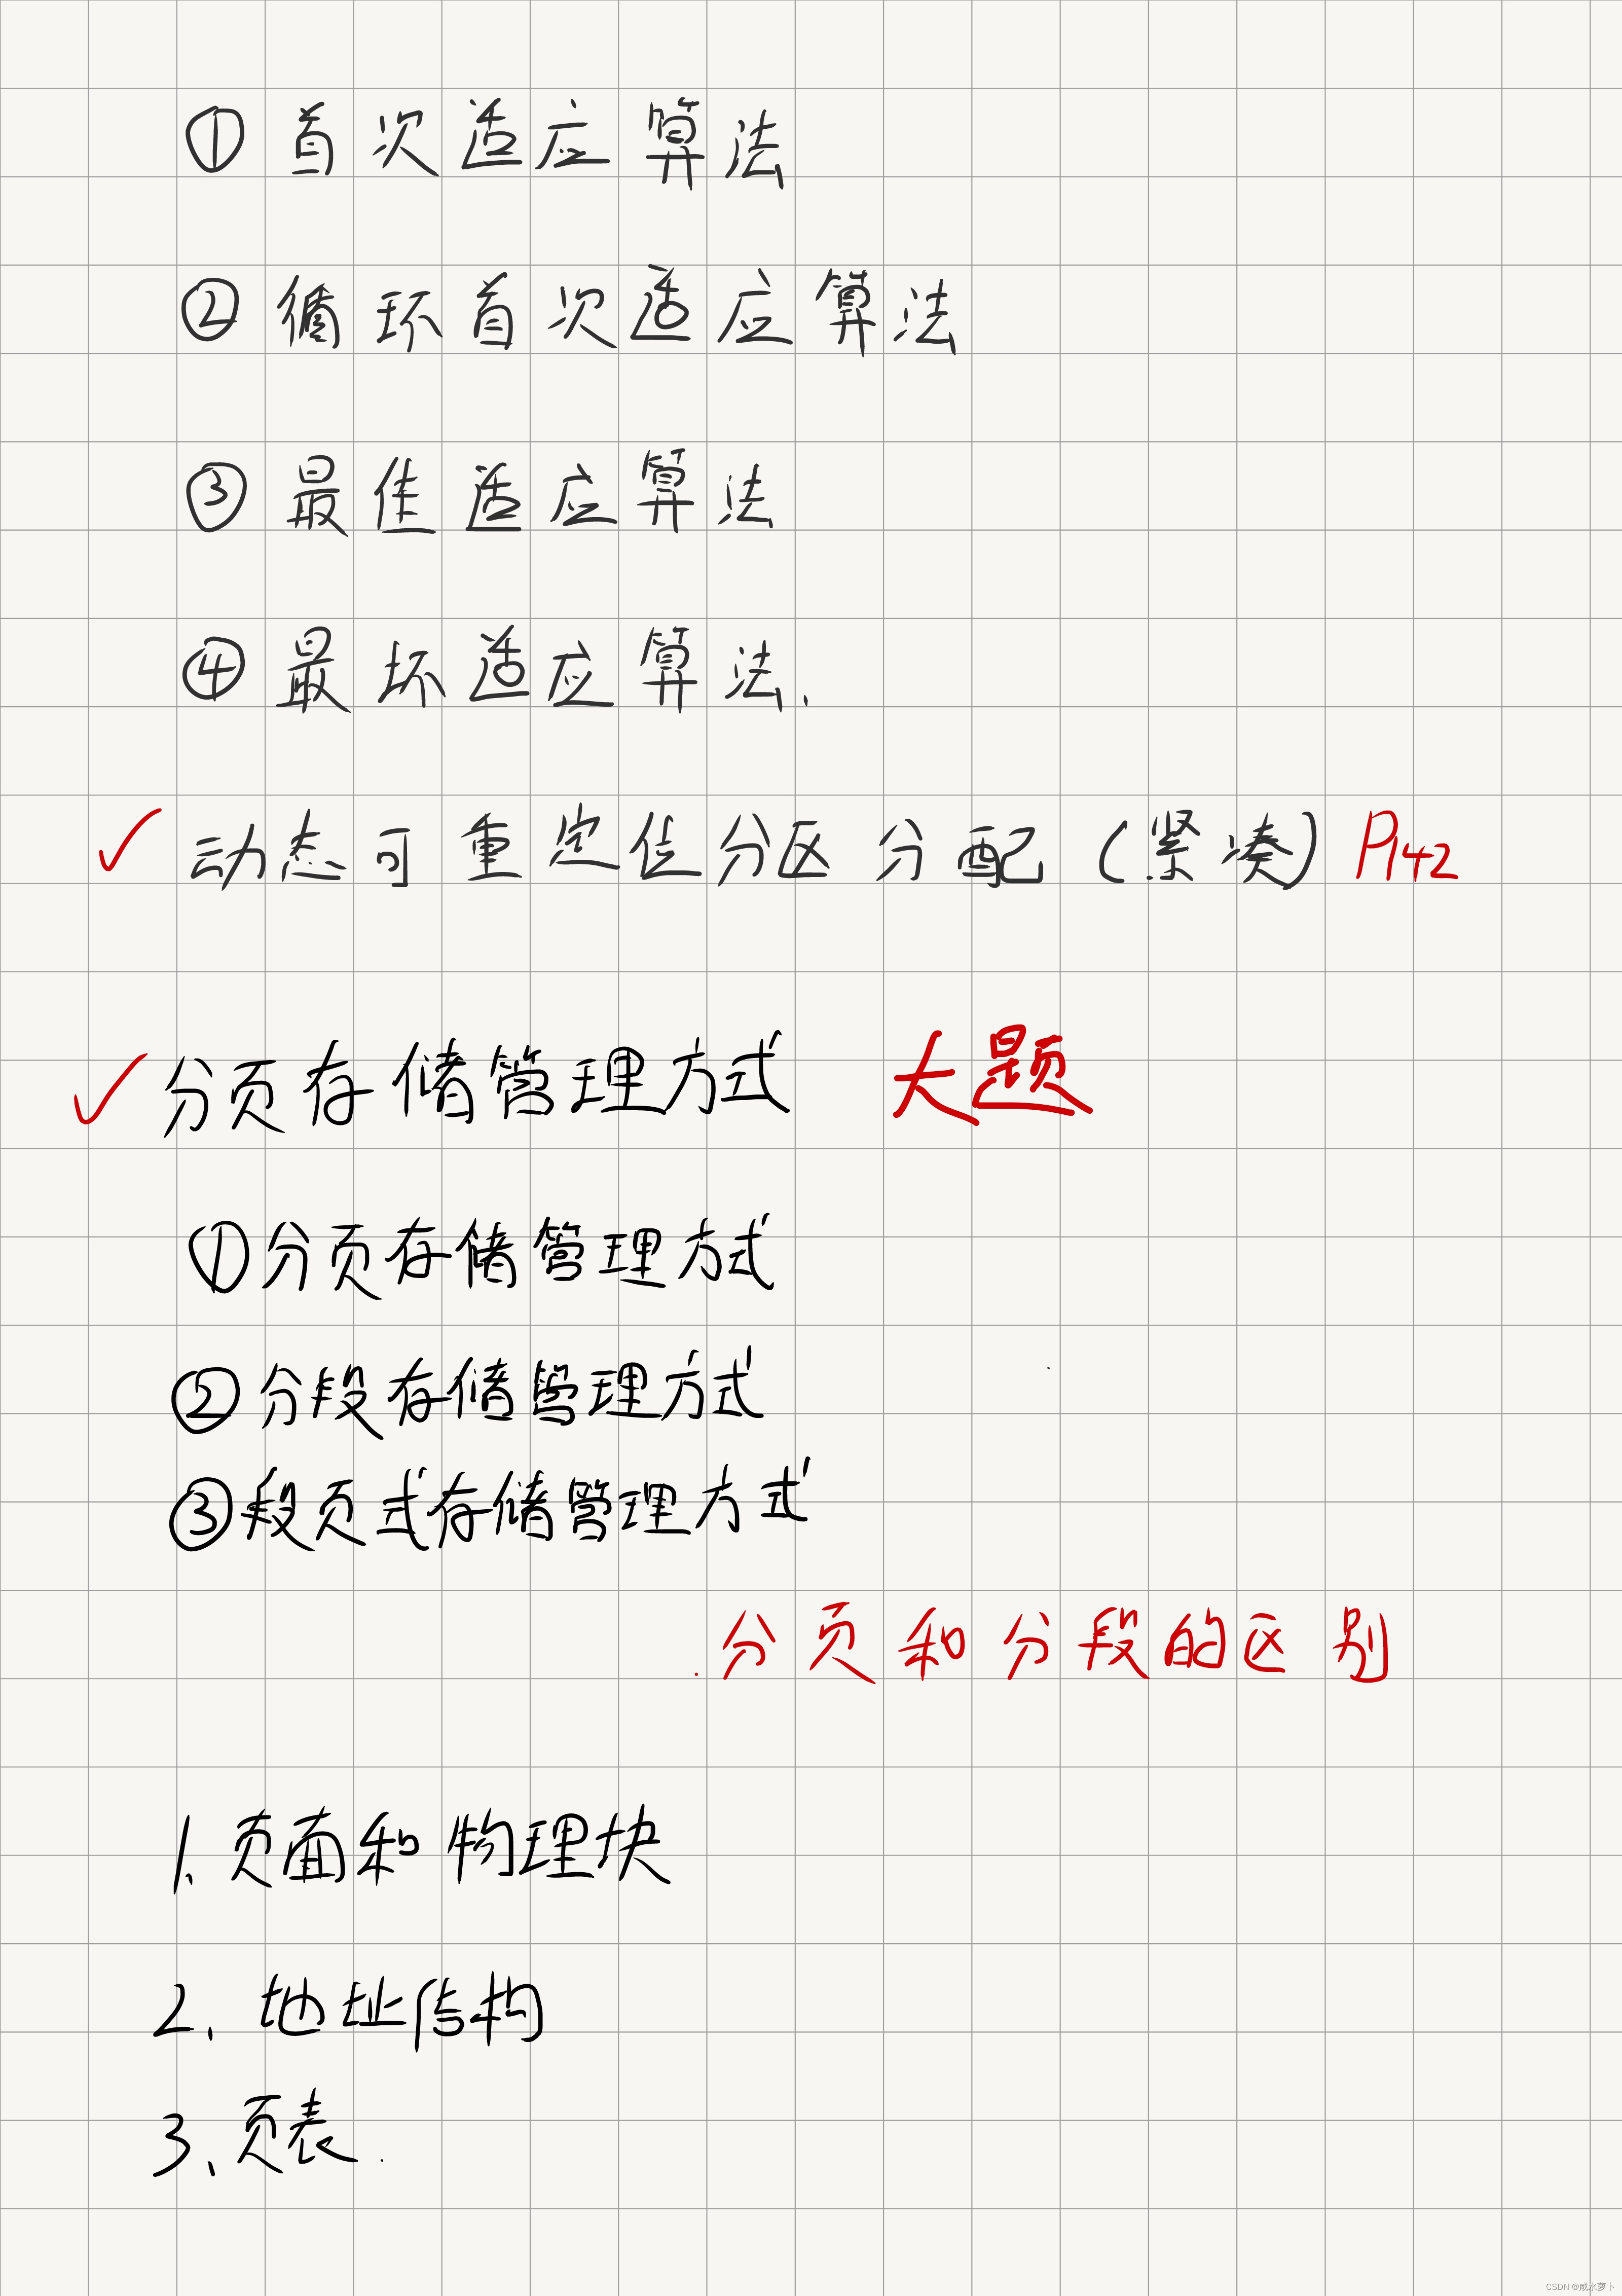 ① 首次适应算法
② 循环首次适应算法
③ 最佳适应算法
④ 最坏适应算法.
✓ 动态可重定位分区分配(紧凑) P142
✓ 分页存储管理方式 大题
①分页存储管理方式
②分段存储管理方式
③段页式存储管理方式
分页和分段的区别
1. 页面和物理块
2. 地址结构
3. 页表.
CSDN @咸水萝卜